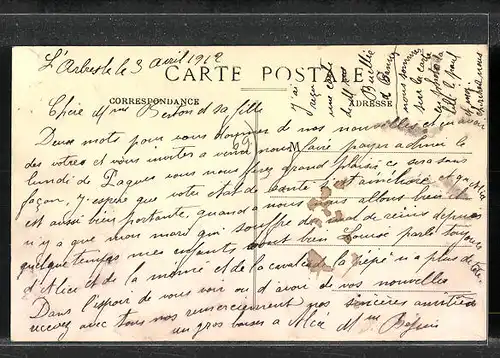 L'Arbresle le 3 avril 1912
CARTE POSTALE
CORRESPONDANCE
ADRESSE
Chère Mme Berson et sa fille
Deux mots pour vous donner de nos nouvelles et en avoir
des votres et vous invites a venir nous faire
lundi de Paques vous nous ferez grand plaisir ce sera sans
façon, j'espere que votre état de santé s'est amélioré et que Alice
est aussi bien portante, quand a nous nous allons bien
il n'y a que mon mari qui souffre de mal de reins depuis
quelque temps mes enfants vont bien Louise parle toujours
d'Alice et de la mémé et de la cavalerie la pépé n'a plus de
Dans l'espoir de vous voir ou d'avoir de vos nouvelles
recevez avec tous nos remerciement nos sincères amitiés
un gros baiser a Alice Mme
69
M
j'ai
reçu
une carte
de Mme
nous sommes
sur la carte